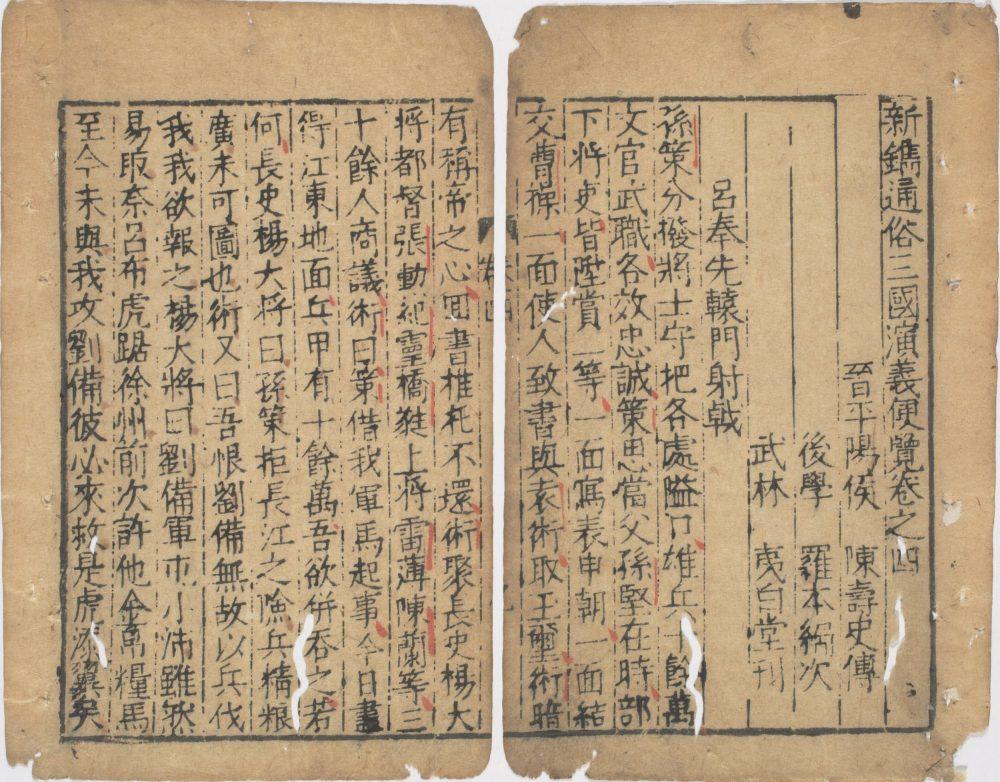 新鐫通俗三國演義便覽卷之四
晉平陽侯 陳壽史傳
後學 羅本編次
武林 夷白堂刊
呂奉先轅門射戟
孫策分撥將士守把各處隘口雄兵十餘萬
文官武職各效忠誠策思當父孫堅在時部
下將吏皆陞賞一等一面寫表申朝一面結
交曹操一面使人致書與袁術取玉璽術暗
卷四
有稱帝之心回書推托不還術聚長史楊大
將都督張勳紀靈橋甤上將雷薄陳蘭等三
十餘人商議術曰策借我軍馬起事今日盡
得江東地面兵甲有十餘萬吾欲併吞之若
何長史楊大將曰孫策拒長江之險兵精粮
廣未可圖也術又曰吾恨劉備無故以兵伐
我我欲報之楊大將曰劉備軍屯小沛雖然
易取奈呂布虎踞徐州前次許他金萬糧馬
至今未與我攻劉備彼必來救是虎添翼矣